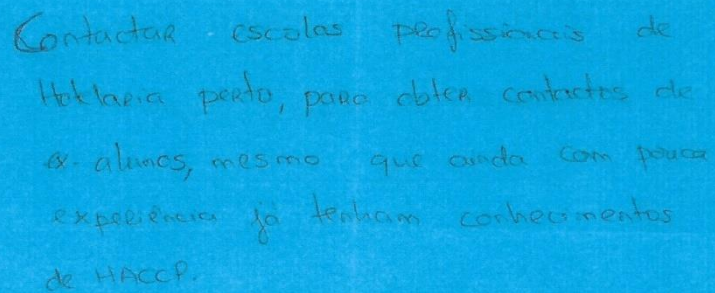 Contactar escolas profissionais de
Hotelaria perto, para obter contactos de
ex-alunos, mesmo que ainda com pouca
experiência já tenham conhecimentos
de HACCP.